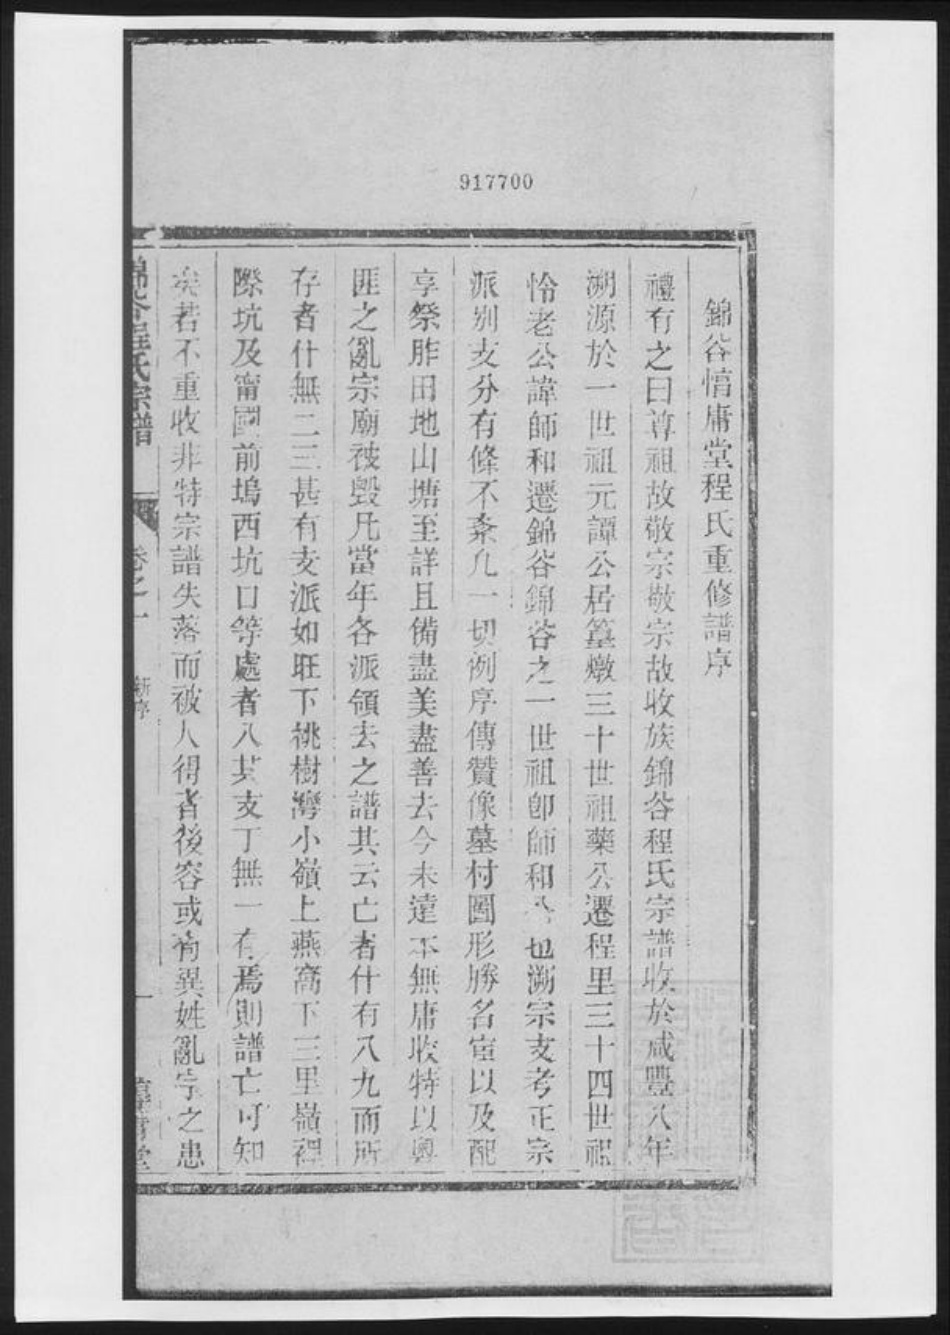 917700
錦谷惇庸堂程氏重修譜序
禮有之曰尊祖故敬宗敬宗故收族錦谷程氏宗譜收於咸豐八年
溯源於一世祖元譚公居篁墩三十世祖藥公遷程里三十四世祖
怜老公諱師和遷錦谷錦谷之一世祖卽師和公也溯宗支考正宗
派别支分有條不紊凡一切例序傳贊像墓村圖形勝名宦以及配
享祭胙田地山塘至詳且備盡美盡善去今未遠本無庸收特以粵
匪之亂宗廟被毀凡當年各派領去之譜其云亡者什有八九而所
存者什無二三甚有支派如旺下祧樹灣小嶺上燕窩下三里嶺裡
際坑及甯國前塢西坑口等處者人其支丁無一存焉則譜亡可知
矣若不重收非特宗譜失落而被人得者後容或有異姓亂宗之患
錦谷程氏宗譜 卷之一 新序 一 惇庸堂